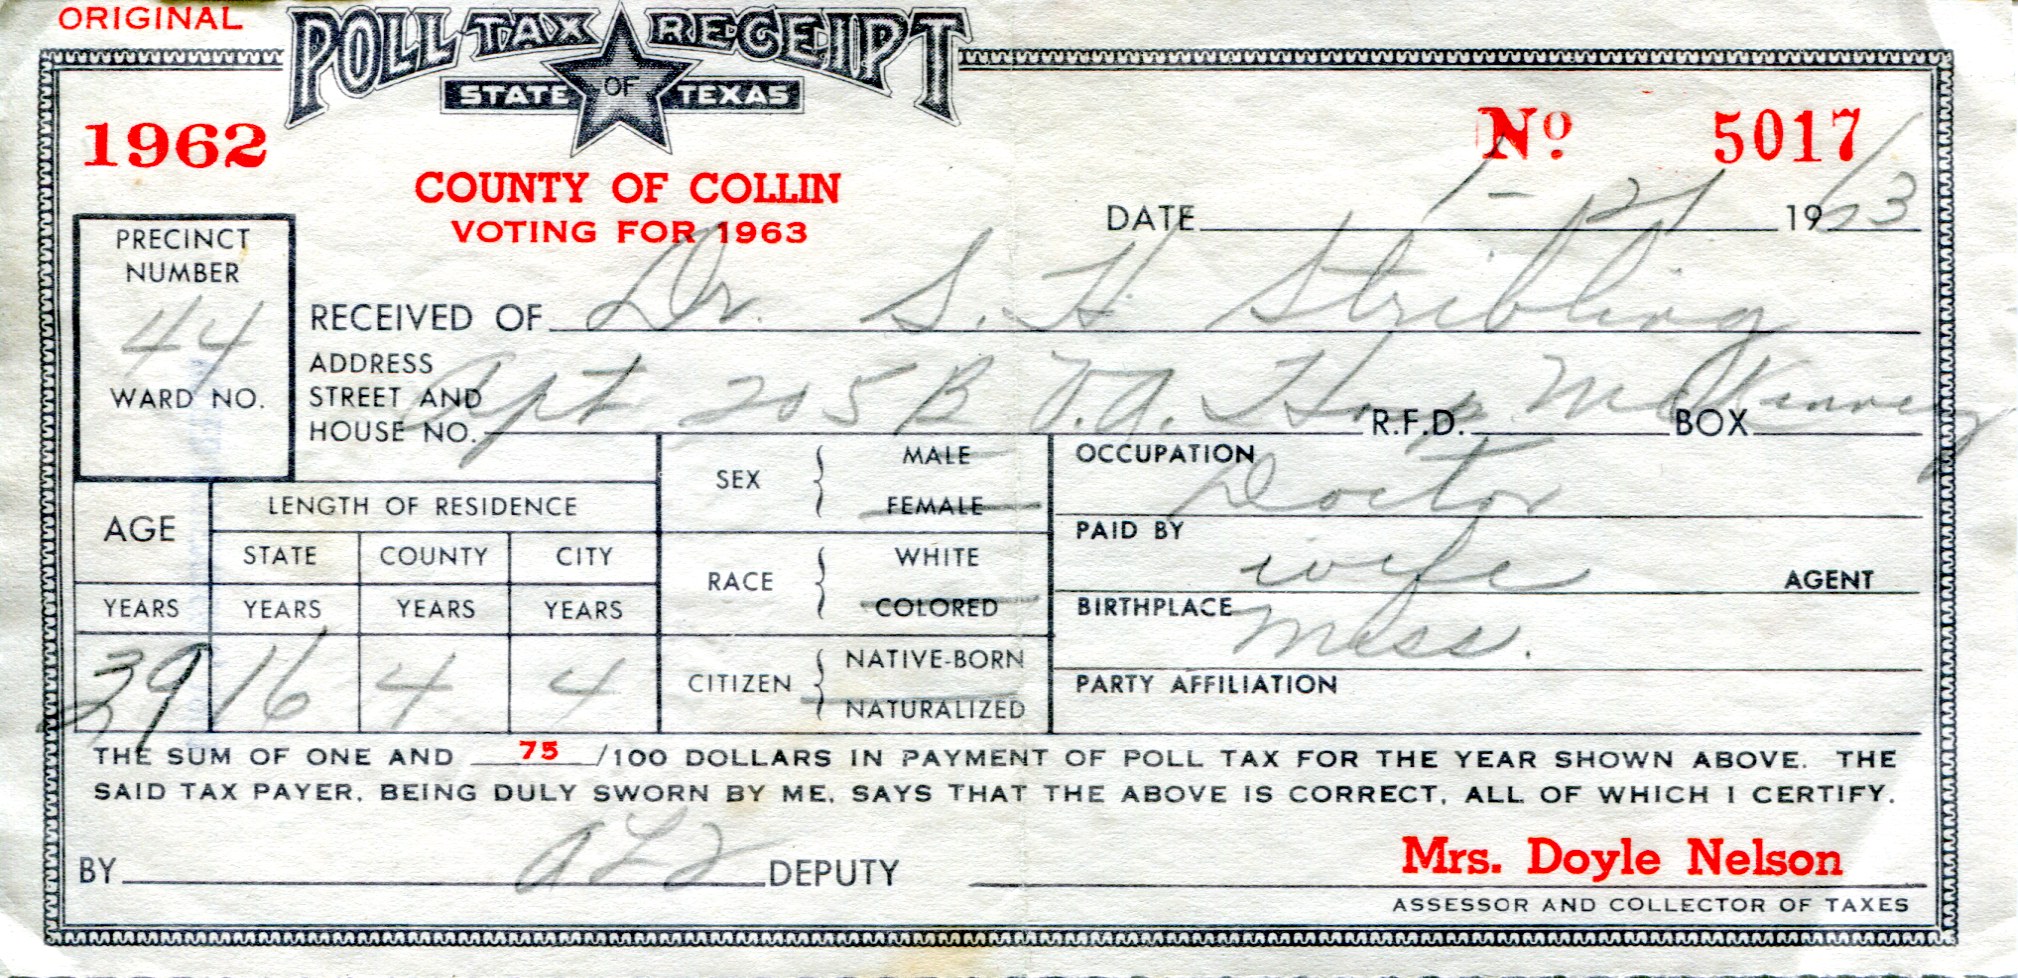 ORIGINAL
POLL TAX RECEIPT
STATE OF TEXAS
1962
COUNTY OF COLLIN
VOTING FOR 1963
No 5017
DATE 1-21 1963
PRECINCT
NUMBER
44
WARD NO.
RECEIVED OF Dr. S. H Stribling
ADDRESS
STREET AND
HOUSE NO. Apt 205 B V.A. Hosp McKinney R.F.D. BOX
AGE
YEARS
39
LENGTH OF RESIDENCE
STATE COUNTY CITY
YEARS YEARS YEARS
16 4 4
SEX { MALE
FEMALE
RACE { WHITE
COLORED
CITIZEN { NATIVE-BORN
NATURALIZED
OCCUPATION Doctor
PAID BY wife AGENT
BIRTHPLACE Miss.
PARTY AFFILIATION
THE SUM OF ONE AND 75/100 DOLLARS IN PAYMENT OF POLL TAX FOR THE YEAR SHOWN ABOVE. THE
SAID TAX PAYER, BEING DULY SWORN BY ME, SAYS THAT THE ABOVE IS CORRECT, ALL OF WHICH I CERTIFY.
BY DEPUTY
Mrs. Doyle Nelson
ASSESSOR AND COLLECTOR OF TAXES